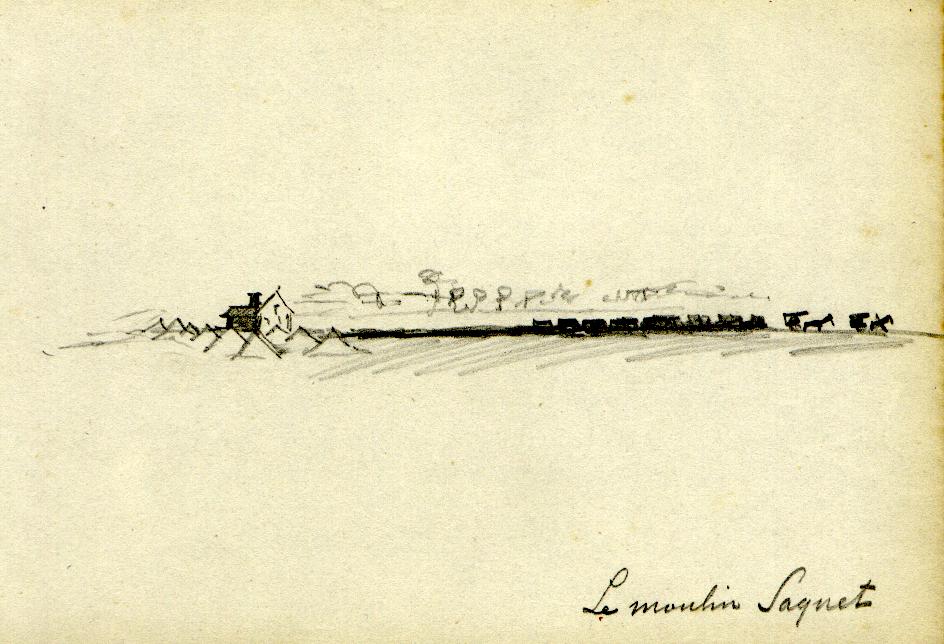 Le moulin Saquet